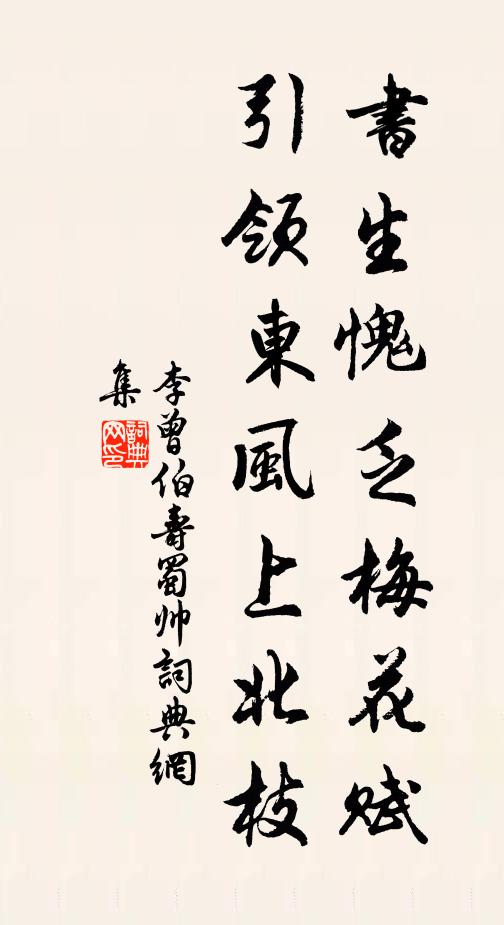 書生愧乏梅花賦
引領東風上北枝
李曾伯壽蜀帥詞典網
集
詞典
网印